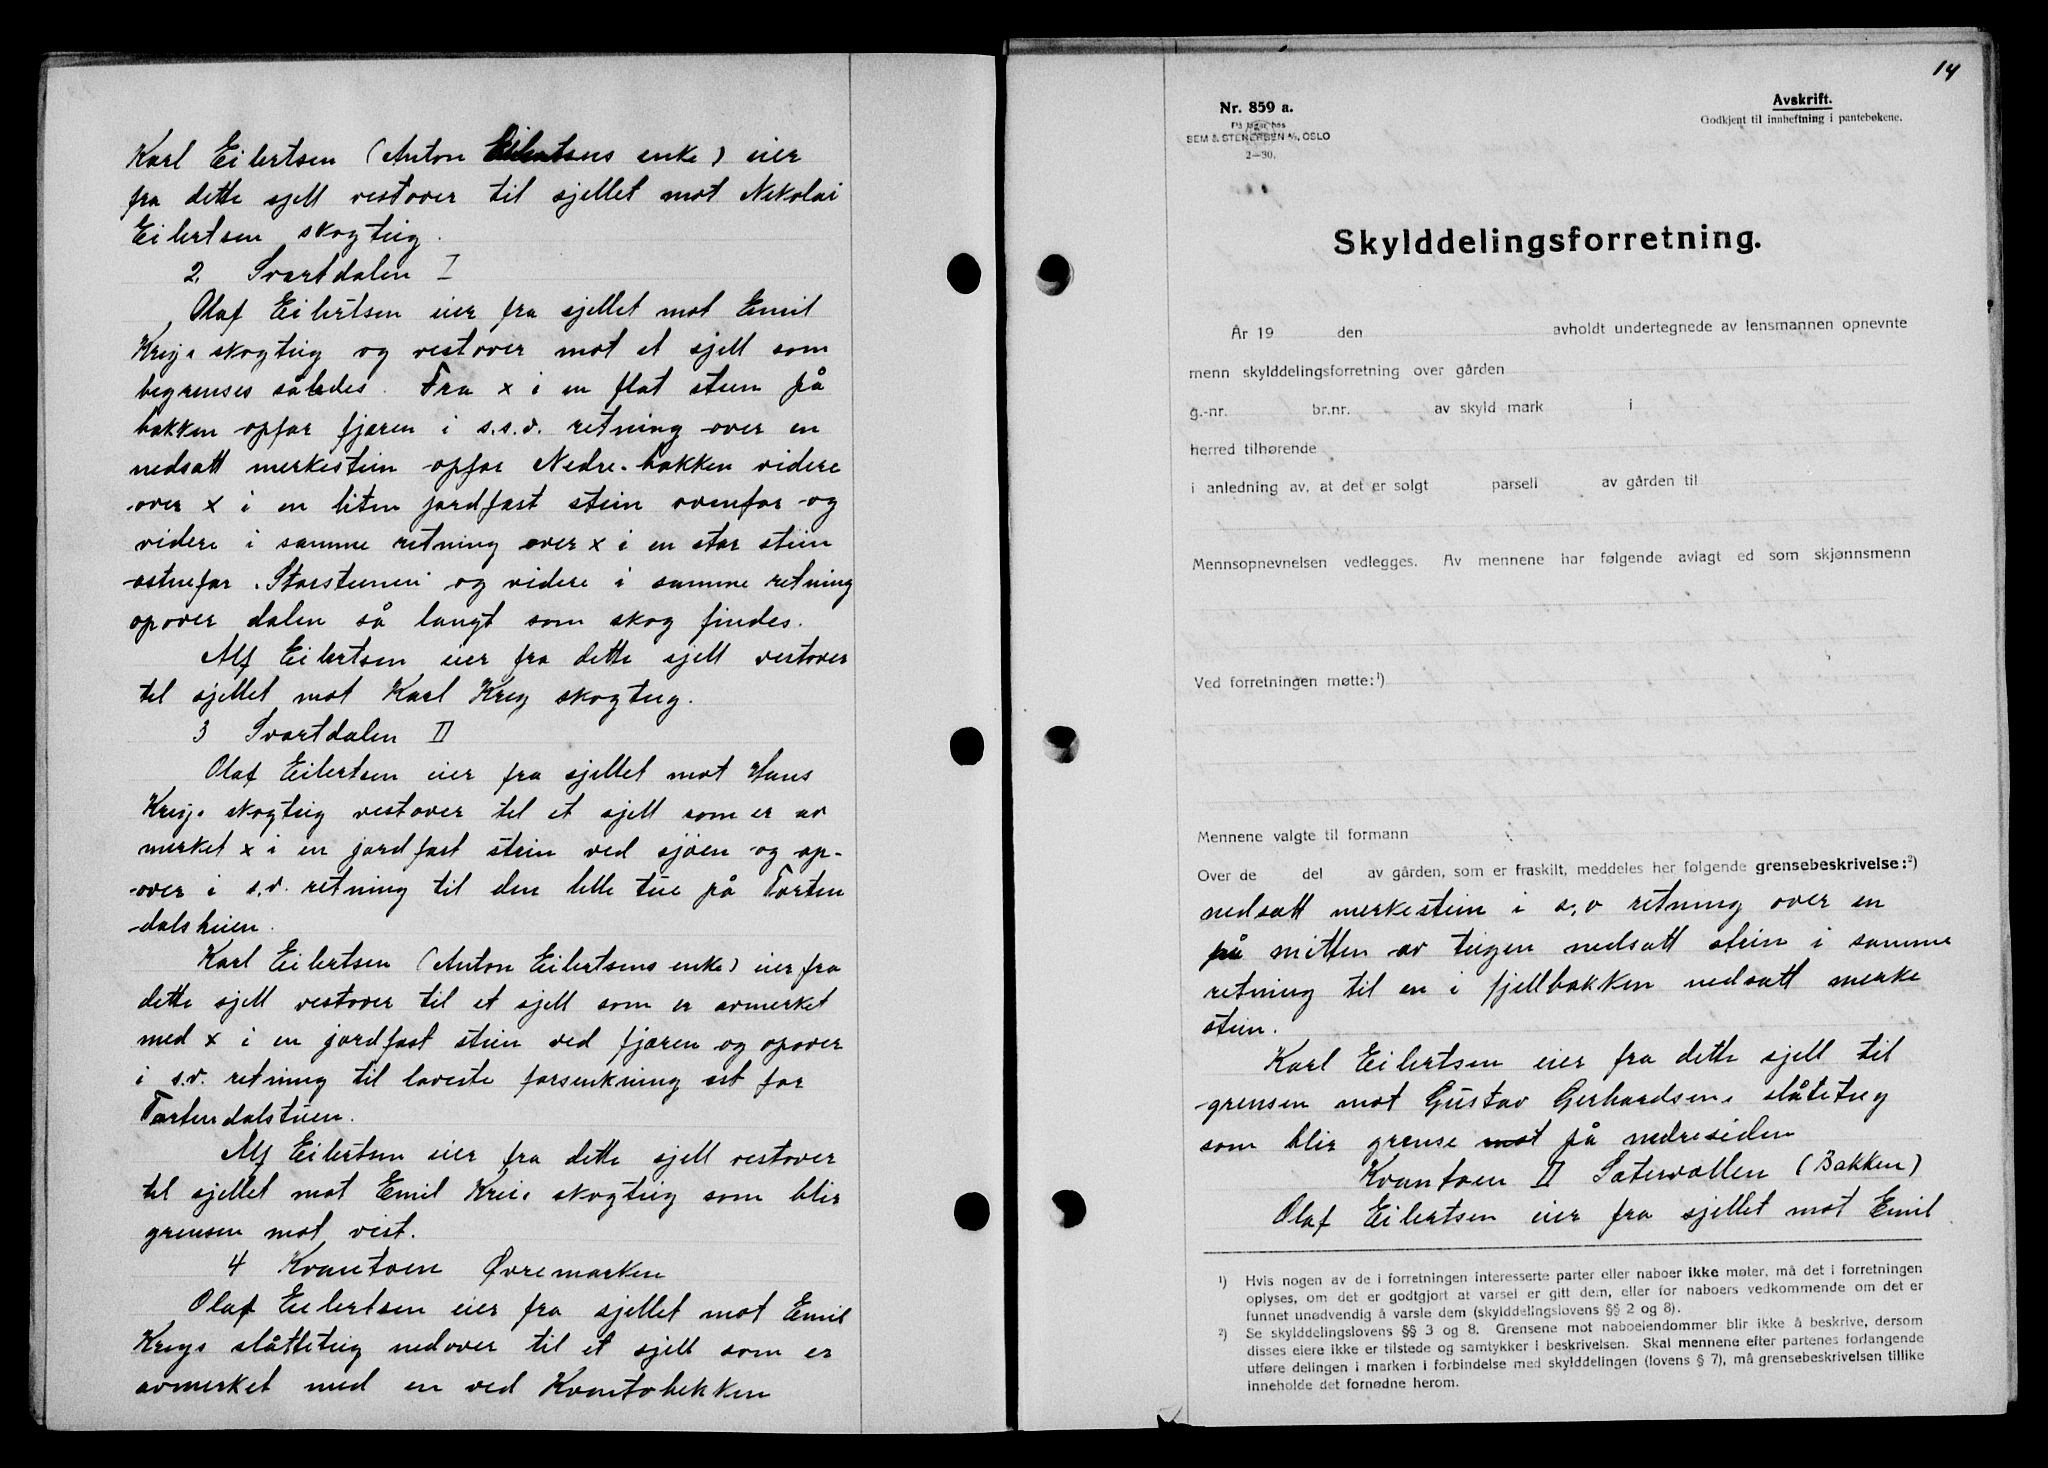 Karl Eilertsen (Anton Eilertsens enke) eier
fra dette sjell vestover til sjellet mot Nikolai
Eilertsen skogteig.
2. Svartdalen I
Olaf Eilertsen eier fra sjellet mot Emil
Krigs skogteig og vestover mot et sjell som
begrenses således. Fra x i en flat stein på
bakken opfor fjæren i s.s.v. retning over en
nedsatt merkestein opfor Nedre-bakken videre
over x i en liten jordfast stein ovenfor og
videre i samme retning over x i en stor stein
østnefor "Storsteinen" og videre i samme retning
opover dalen så langt som skog findes.
Alf Eilertsen eier fra dette sjell vestover
til sjellet mot Karl Krig skogteig.
3 Svartdalen II
Olaf Eilertsen eier fra sjellet mot Hans
Krigs skogteig vestover til et sjell som er av
merket x i en jordfast stein ved sjøen og op-
over i s.v. retning til den lille tue på Torten
dalsheien.
Karl Eilertsen (Anton Eilertsens enke) eier fra
dette sjell vestover til et sjell som er avmerket
med x i en jordfast stein ved fjæren og opover
i s.v. retning til laveste forsenkning øst for
Tortendalstuen.
Alf Eilertsen eier fra dette sjell vestover
til sjellet mot Emil Krigs skogteig som blir
grensen mot vest.
4 Kvantoen Øvremarken
Olaf Eilertsen eier fra sjellet mot Emil
Krigs slåtteteig nedover til et sjell som er
avmerket med en ved Kvantobekken
14
Nr. 859 a.
På lager hos
SEM & STENERSEN A/S, OSLO
2—30.
Avskrift.
Godkjent til innheftning i pantebøkene.
Skylddelingsforretning.
År 19 den avholdt undertegnede av lensmannen opnevnte
menn skylddelingsforretning over gården
g.-nr. br.nr. av skyld mark i
herred tilhørende
i anledning av, at det er solgt parsell av gården til
Mennsopnevnelsen vedlegges. Av mennene har følgende avlagt ed som skjønnsmenn
Ved forretningen møtte:¹)
Mennene valgte til formann
Over de del av gården, som er fraskilt, meddeles her følgende grensebeskrivelse:²)
nedsatt merkestein i s,v retning over en
på mitten av teigen nedsatt stein i samme
retning til en i fjellbakken nedsatt merke
stein.
Karl Eilertsen eier fra dette sjell til
grensen mot Gustav Gerhardsens slåteteig
som blir grense mot på nedresiden
Kvantoen II Satervollen (Bakken)
Olaf Eilertsen eier fra sjellet mot Emil
¹) Hvis nogen av de i forretningen interesserte parter eller naboer ikke møter, må det i forretningen
oplyses, om det er godtgjort at varsel er gitt dem, eller for naboers vedkommende om det er
funnet unødvendig å varsle dem (skylddelingslovens §§ 2 og 8).
²) Se skylddelingslovens §§ 3 og 8. Grensene mot naboeiendommer blir ikke å beskrive, dersom
disses eiere ikke er tilstede og samtykker i beskrivelsen. Skal mennene efter partenes forlangende
utføre delingen i marken i forbindelse med skylddelingen (lovens § 7), må grensebeskrivelsen tillike
inneholde det fornødne herom.